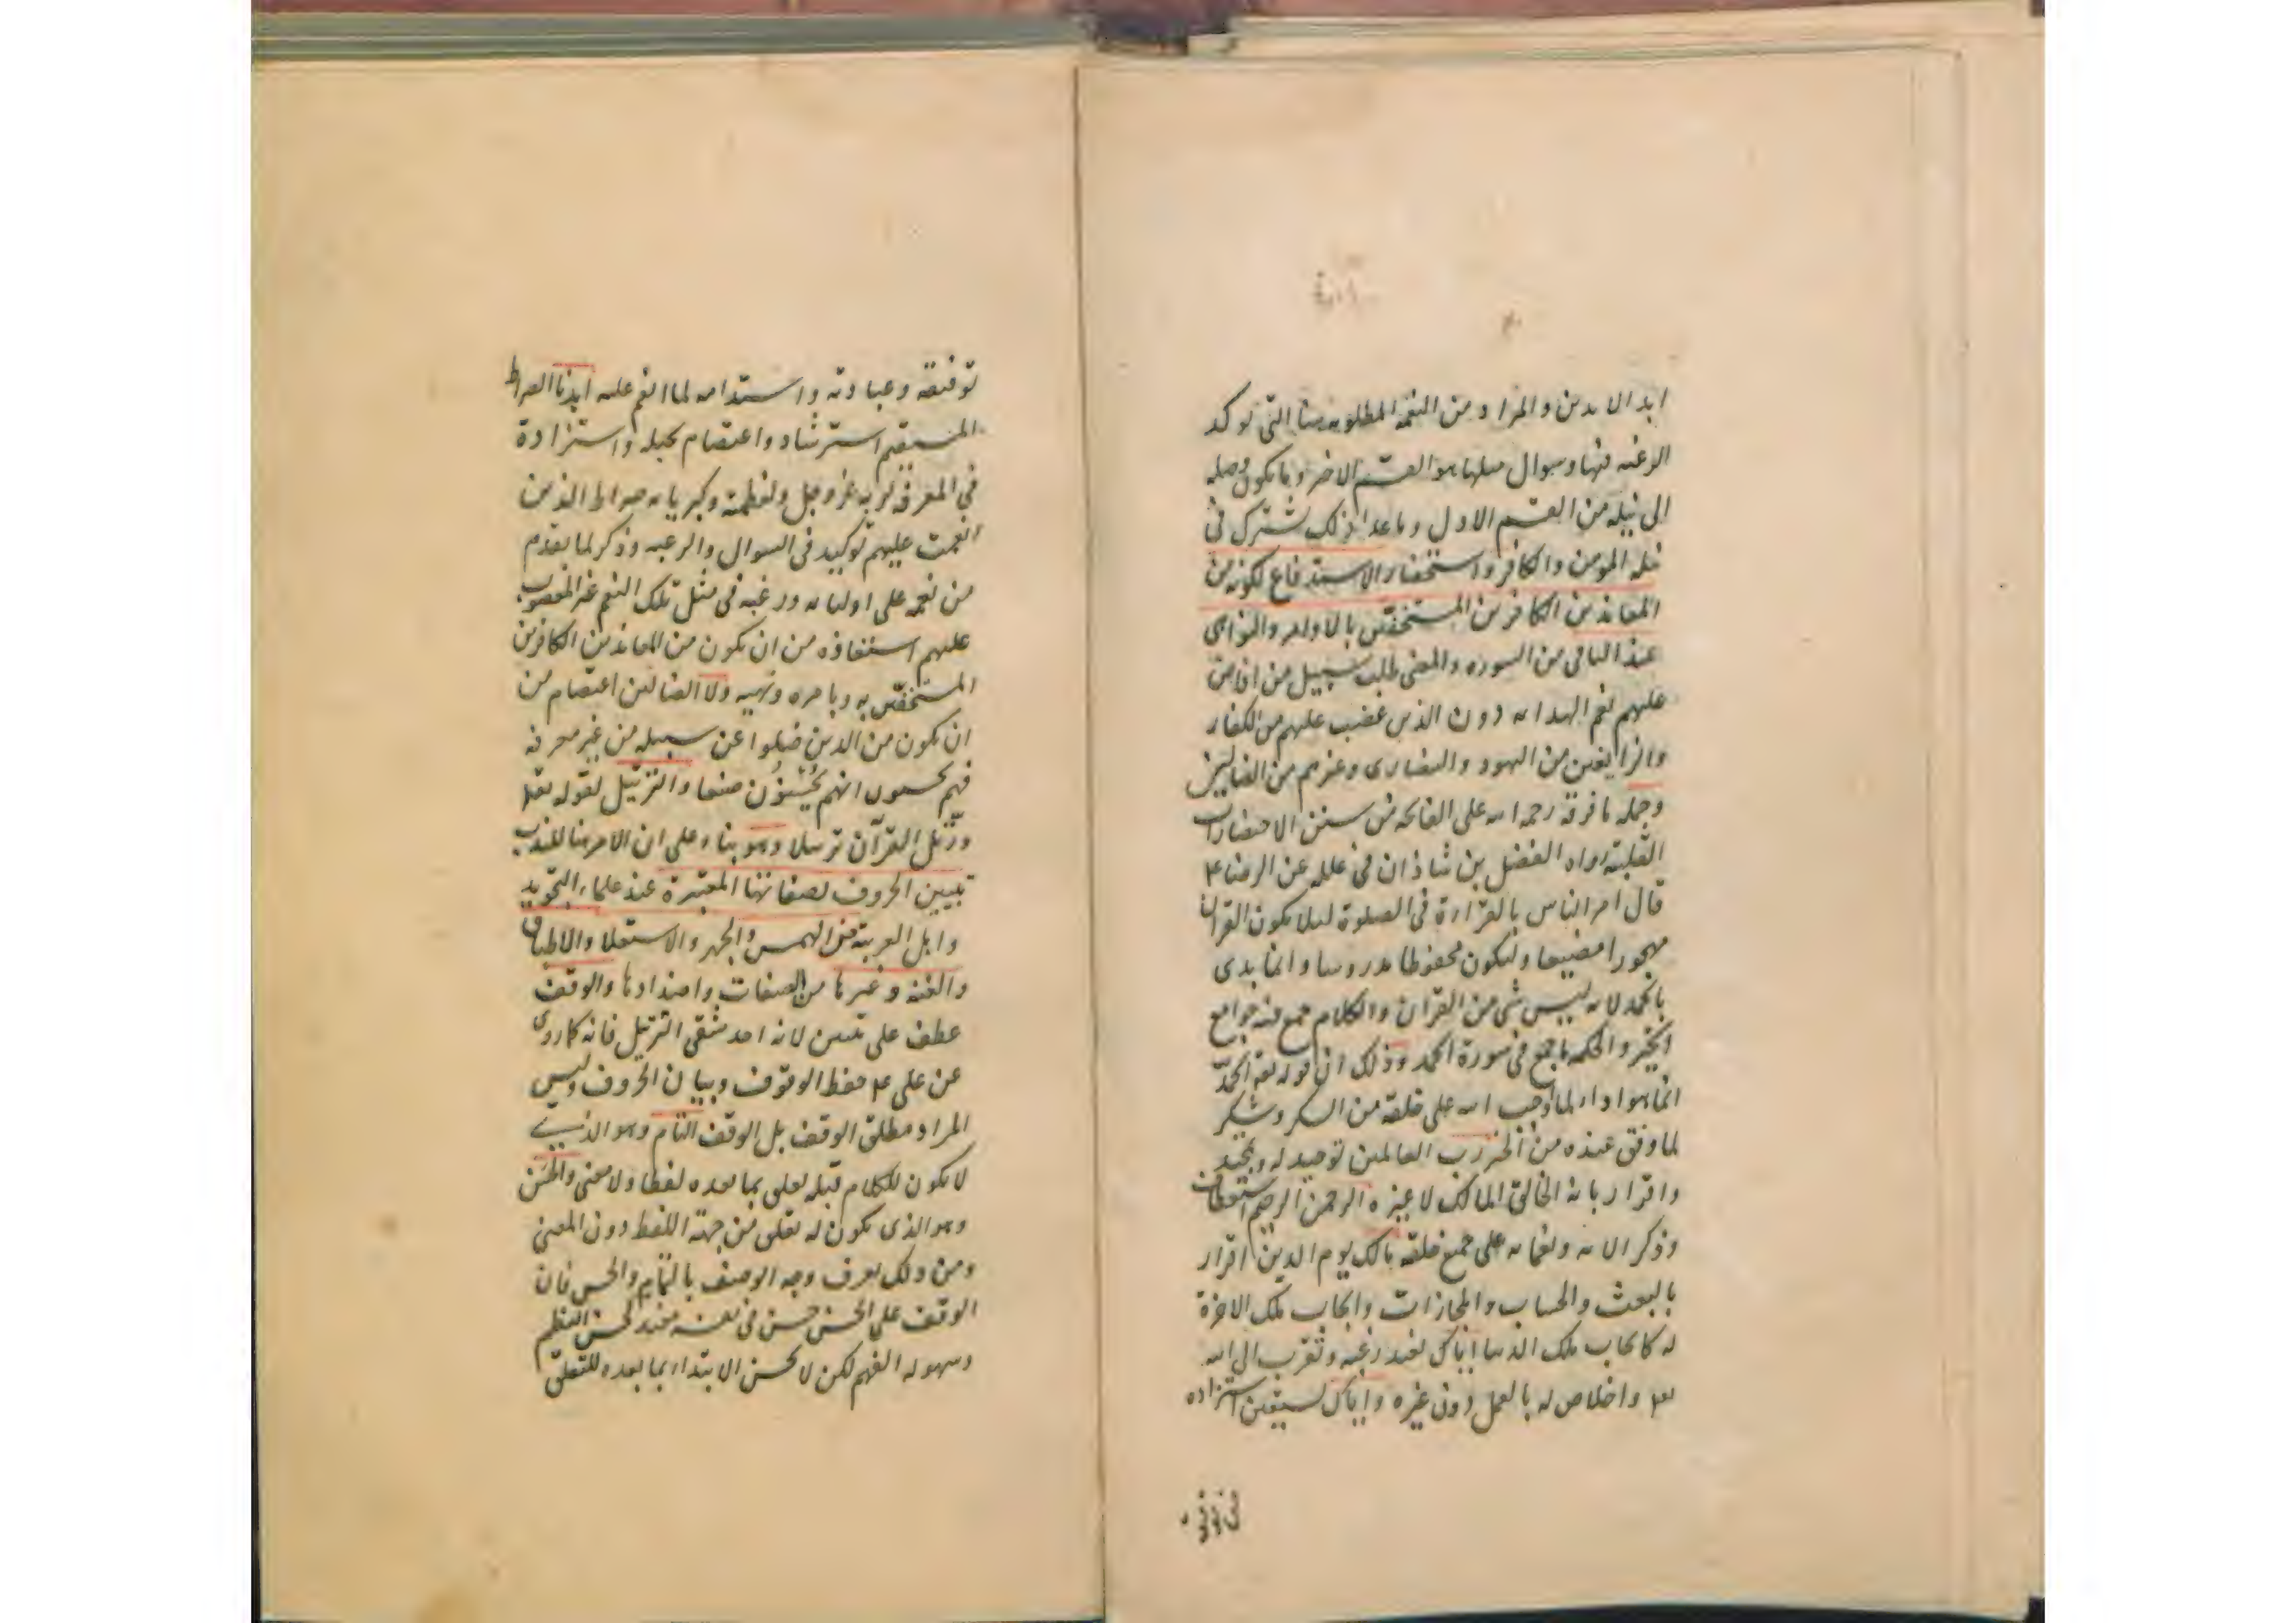 ابد الابدين والمراد من النعمة المطلوبة هنا التي توكد
الرغبة فيها وسوال مثلها هو القسم الاخر وما يكون وصلة
الى نيله من القسم الاول وما عدا ذلك يشترك في
نيله المومن والكافر واستحضار الاستدفاع لكونه من
المعاندين الكافرين المستخفين بالاوامر والنواهى
عند الباقى من السورة والمعنى طلب سبيل من افاض
عليهم نعم الهداية دون الذين غضب عليهم من الكفار
والزايغين من اليهود والنصارى وغيرهم من الضالين
وجملة ما فرقه رحمه الله على الفاتحة من سنن الاحضارات
القلبية رواه الفضل بن شاذان في علله عن الرضا ع
قال امر الناس بالقراءة فى الصلوة لئلا يكون القران
مهجورا مضيعا وليكون محفوظا مدروسا وانما بدى
بالحمد لانه ليس شى من القران والكلام جمع فيه جوامع
الخير والحكمة ما جمع فى سورة الحمد وذلك ان قوله تعه الحمد
انما هو اداء لما اوجب الله على خلقه من الشكر وشكر
لما وفق عبده من الخير رب العالمين توحيد له وتحميد
واقرار بانه الخالق المالك لا غيره الرحمن الرحيم استعطاف
وذكر الائه ونعمائه على جميع خلقه مالك يوم الدين اقرار
بالبعث والحساب والمجازات وايجاب ملك الاخرة
له كايجاب ملك الدنيا اياك نعبد رغبة وتقرب الى الله
تعه واخلاص له بالعمل دون غيره واياك نستعين استزادة
توفيقه وعبادته واستدامه لما انعم عليه اهدنا الصراط
المستقيم استرشاد واعتصام بحبله واستزادة
في المعرفة لربه عز وجل ولعظمته وكبريائه صراط الذين
انعمت عليهم توكيد فى السوال والرغبه وذكر لما تقدم
من نعمه على اوليائه ورغبة فى مثل تلك النعم غير المغضوب
عليهم استعاذه من ان يكون من المعاندين الكافرين
المستخفين به وبامره ونهيه ولا الضالين اعتصام من
ان يكون من الذين ضلوا عن سبيله من غير معرفة
فهم يحسبون انهم يحسنون صنعا والترتيل لقوله تعا
ورتل القرآن ترتيلا وهو بناء على ان الامر هنا للندب
تبيين الحروف بصفاتها المعتبرة عند علماء التجويد
واهل العربية من الهمس والجهر والاستعلا والاطباق
والغنة وغيرها من الصفات واضدادها والوقف
عطف على تبيين لانه احد شقى الترتيل فانه كما روى
عن على ع حفظ الوقوف وبيان الحروف وليس
المراد مطلق الوقف بل الوقف التام وهو الذي
لا يكون للكلام قبله تعلق بما بعده لفظا ولا معنى والحسن
وهو الذى يكون له تعلق من جهة اللفظ دون المعنى
ومن ذلك يعرف وجه الوصف بالتمام والحسن فان
الوقف على الحسن حسن فى نفسه مفيد لحسن النظم
وسهولة الفهم لكن لا يحسن الابتداء بما بعده للتعلق